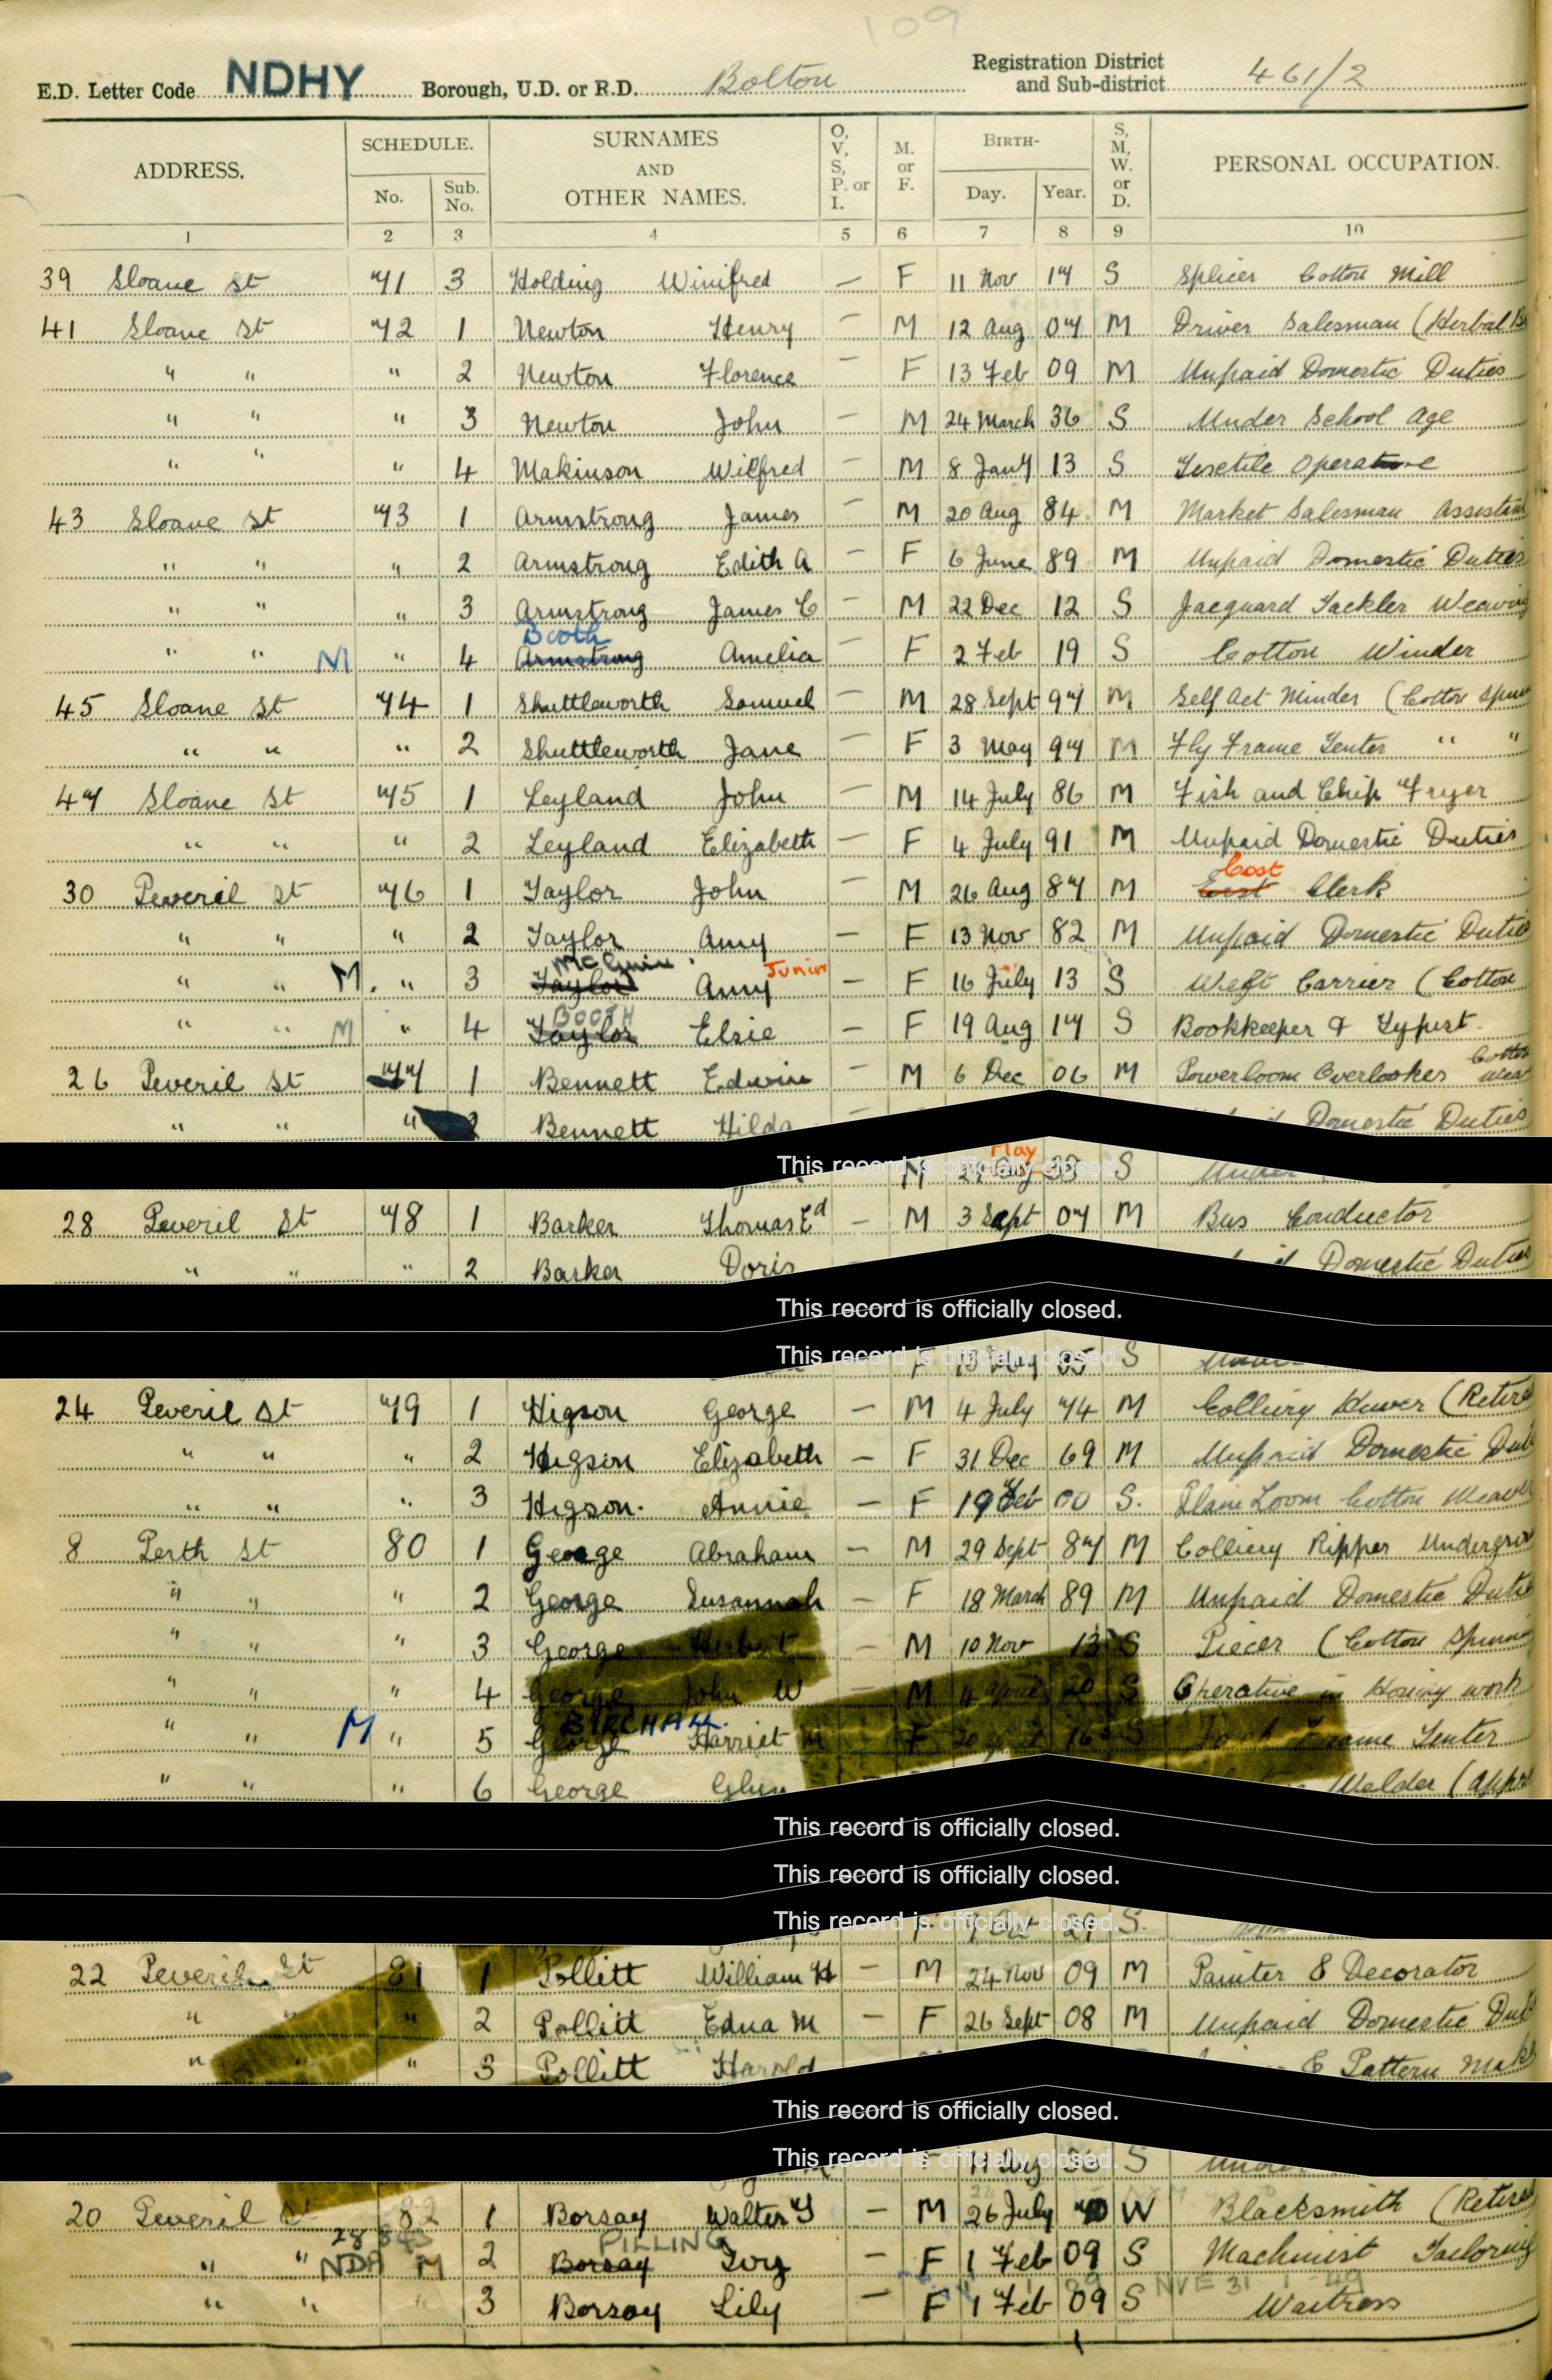 109
E.D. Letter Code NDHY Borough, U.D. or R.D. Bolton Registration District and Sub-district 461/2
ADDRESS. SCHEDULE. No. Sub. No. SURNAMES AND OTHER NAMES. O, V, S, P. or I. M. or F. BIRTH- Day. Year. S, M, W. or D. PERSONAL OCCUPATION.
1 2 3 4 5 6 7 8 9 10
39 Sloane St 71 3 Holding Winifred — F 11 Nov 17 S Splicer Cotton Mill
41 Sloane St 72 1 Newton Henry — M 12 Aug 07 M Driver Salesman (Herbal
" " " 2 Newton Florence — F 13 Feb 09 M Unpaid Domestic Duties
" " " 3 Newton John — M 24 March 36 S Under School Age
" " " 4 Makinson Wilfred — M 8 Jany 13 S Textile Operative
43 Sloane St 73 1 Armstrong James — M 20 Aug 84 M Market Salesman Assistant
" " " 2 Armstrong Edith A — F 6 June 89 M Unpaid Domestic Duties
" " " 3 Armstrong James C — M 22 Dec 12 S Jacquard Tackler Weaving
Booth
" " M " 4 Armstrong Amelia — F 2 Feb 19 S Cotton Winder
45 Sloane St 74 1 Shuttleworth Samuel — M 28 Sept 97 M Self Act Minder (Cotton Spin
" " " 2 Shuttleworth Jane — F 3 May 97 M Fly Frame Tenter " "
47 Sloane St 75 1 Leyland John — M 14 July 86 M Fish and Chip Fryer
" " " 2 Leyland Elizabeth — F 4 July 91 M Unpaid Domestic Duties
Cost
30 Peveril St 76 1 Taylor John — M 26 Aug 87 M Clerk
" " " 2 Taylor Amy — F 13 Nov 82 M Unpaid Domestic Duties
McGuin Junior
" " M. " 3 Taylor Amy — F 16 July 13 S Weft Carrier (Cotton
BOOTH
" " M " 4 Taylor Elsie — F 19 Aug 17 S Bookkeeper & Typist.
Cotton
26 Peveril St 77 1 Bennett Edwin — M 6 Dec 06 M Powerloom Overlooker Weav
" " " 2 Bennett Hilda Domestic Duties
May
This record is officially closed.
28 Peveril St 78 1 Barker Thomas Ed — M 3 Sept 07 M Bus Conductor
" " " 2 Barker Doris Domestic Duties
This record is officially closed.
This record is officially closed.
24 Peveril St 79 1 Higson George — M 4 July 74 M Colliery Hewer (Retired
" " " 2 Higson Elizabeth — F 31 Dec 69 M Unpaid Domestic Duti
" " " 3 Higson. Annie — F 19 Feb 00 S. Plain Loom Cotton Weaver
8 Perth St 80 1 George Abraham — M 29 Sept 87 M Colliery Ripper Undergrou
" " " 2 George Susannah — F 18 March 89 M Unpaid Domestic Duti
" " " 3 George Herbert — M 10 Nov 13 S Piecer (Cotton Spinning
" " " 4 George John W M 4 April 20 S Operative in Hosiery work
BIRCHALL.
" " M " 5 George Harriet M F 20 16 S Frame Tenter
" " " 6 George Glyn Welder (Appr
This record is officially closed.
This record is officially closed.
This record is officially closed.
22 Peveril St 81 1 Pollitt William H — M 24 Nov 09 M Painter & Decorator
" " " 2 Pollitt Edna M — F 26 Sept 08 M Unpaid Domestic Duti
" " " 3 Pollitt Harold & Pattern Mak
This record is officially closed.
This record is officially closed.
20 Peveril St 82 1 Borsay Walter J — M 26 July 70 W Blacksmith (Retired
PILLING
" " M 2 Borsay Ivy — F 1 Feb 09 S Machinist Tailoring
" " " 3 Borsay Lily — F 1 Feb 09 S Waitress